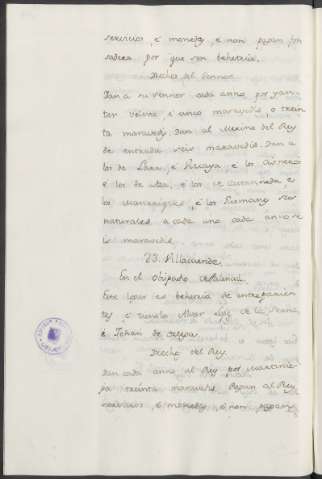 servicios, é monedas, é non pagan fon
sadera por que son behetria.
Derechos del Sennor
Dan a su sennor cada anno por yan
tar veinte, é cinco maravedis, o trein
ta maravedis. Dan al Merino del Rey
de entrada seis maravedis. Dan a
los de Lara, é Vizcaya, é los Cisneros
é los de Aza, é los de Castanneda, é
los Manrriques, é los Guzmanes sus
naturales a cada uno cada anno se
is maravedis.
23. Villacuende.
En el Obispado de Palencia.
Este logar es behetria de entre parien
tes, é tienelo Alvar de la
é Johan de
Derechos del Rey.
Dan cada anno al Rey por martinie
ga treinta maravedis. Pagan al Rey
servicios, é monedas, é non pagan